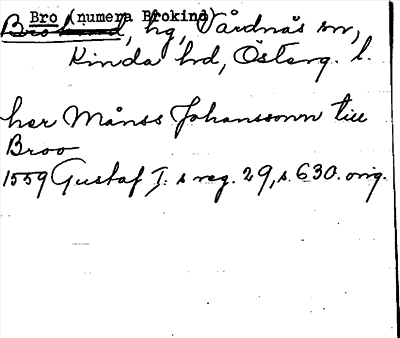 Bro (numera Brokind)
Brokind, hg, Vårdnäs sn,
Kinda hd, Österg. l.
her Månss Johanssonn till
Broo
1559 Gustaf I:s reg. 29, s. 630. orig.